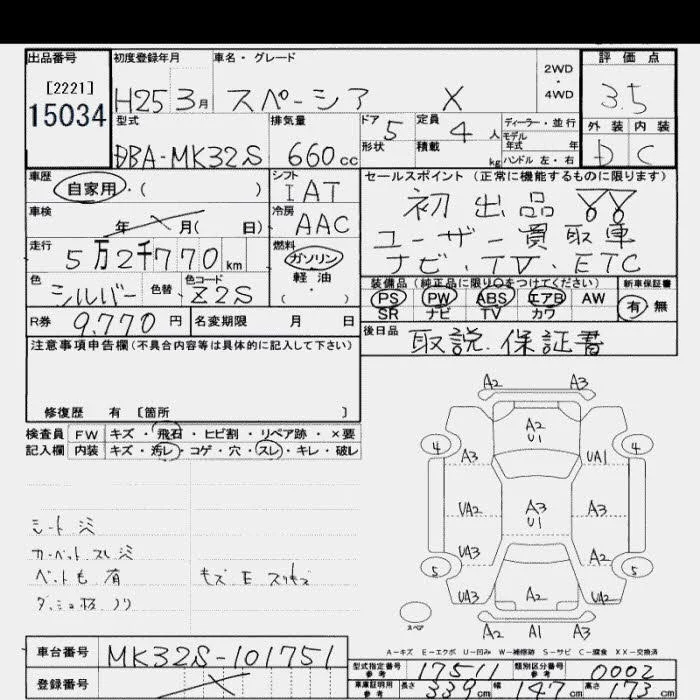 出品番号 初度登録年月 車名・グレード 2WD・4WD 評価点
[2221] 15034
H25 3月 スペーシア X 3.5
型式 排気量 ドア 5 定員 4人 ディーラー・並行 外装 内装
モデル年式 年
DBA-MK32S 660cc 形状 積載 kg ハンドル 左・右 D C
車歴 シフト セールスポイント(正常に機能するものに限ります)
自家用・( ) IAT 初出品
車検 冷房 ユーザー買取車
年 月( 日) AAC ナビ.TV.ETC
走行 燃料 装備品(純正品に限り○をつけてください) 新車保証書
5万2千770km ガソリン・軽油 PS PW ABS エアB AW 有・無
色 色替 色コード ( ) SR ナビ TV カワ
シルバー Z2S
R券 9,770円 名変期限 月 日 後日品 取説.保証書
注意事項申告欄(不具合内容等は具体的に記入して下さい)
修復歴 有 [箇所 ]
検査員 FW キズ・飛石・ヒビ割・リペア跡・×要
記入欄 内装 キズ・汚レ・コゲ・穴・スレ・キレ・破レ
A2 A3
A2
U1
4 4
A3 UA1
VA2 A3 A3
U1
VA3 A2
5 5
VA3 A2 UA3
スペア
A2 A1 A3
シート 汚
カーペット スレ 汚
ペット毛 有
ダッシュ板 ノリ
A-キズ E-エクボ U-凹み W-補修跡 S-サビ C-腐食 XX-交換済
車台番号 MK32S-101751
型式指定番号 参考 17511 類別区分番号 参考 0002
登録番号
車庫証明用 参考 長さ 339cm 幅 147cm 高さ 173cm